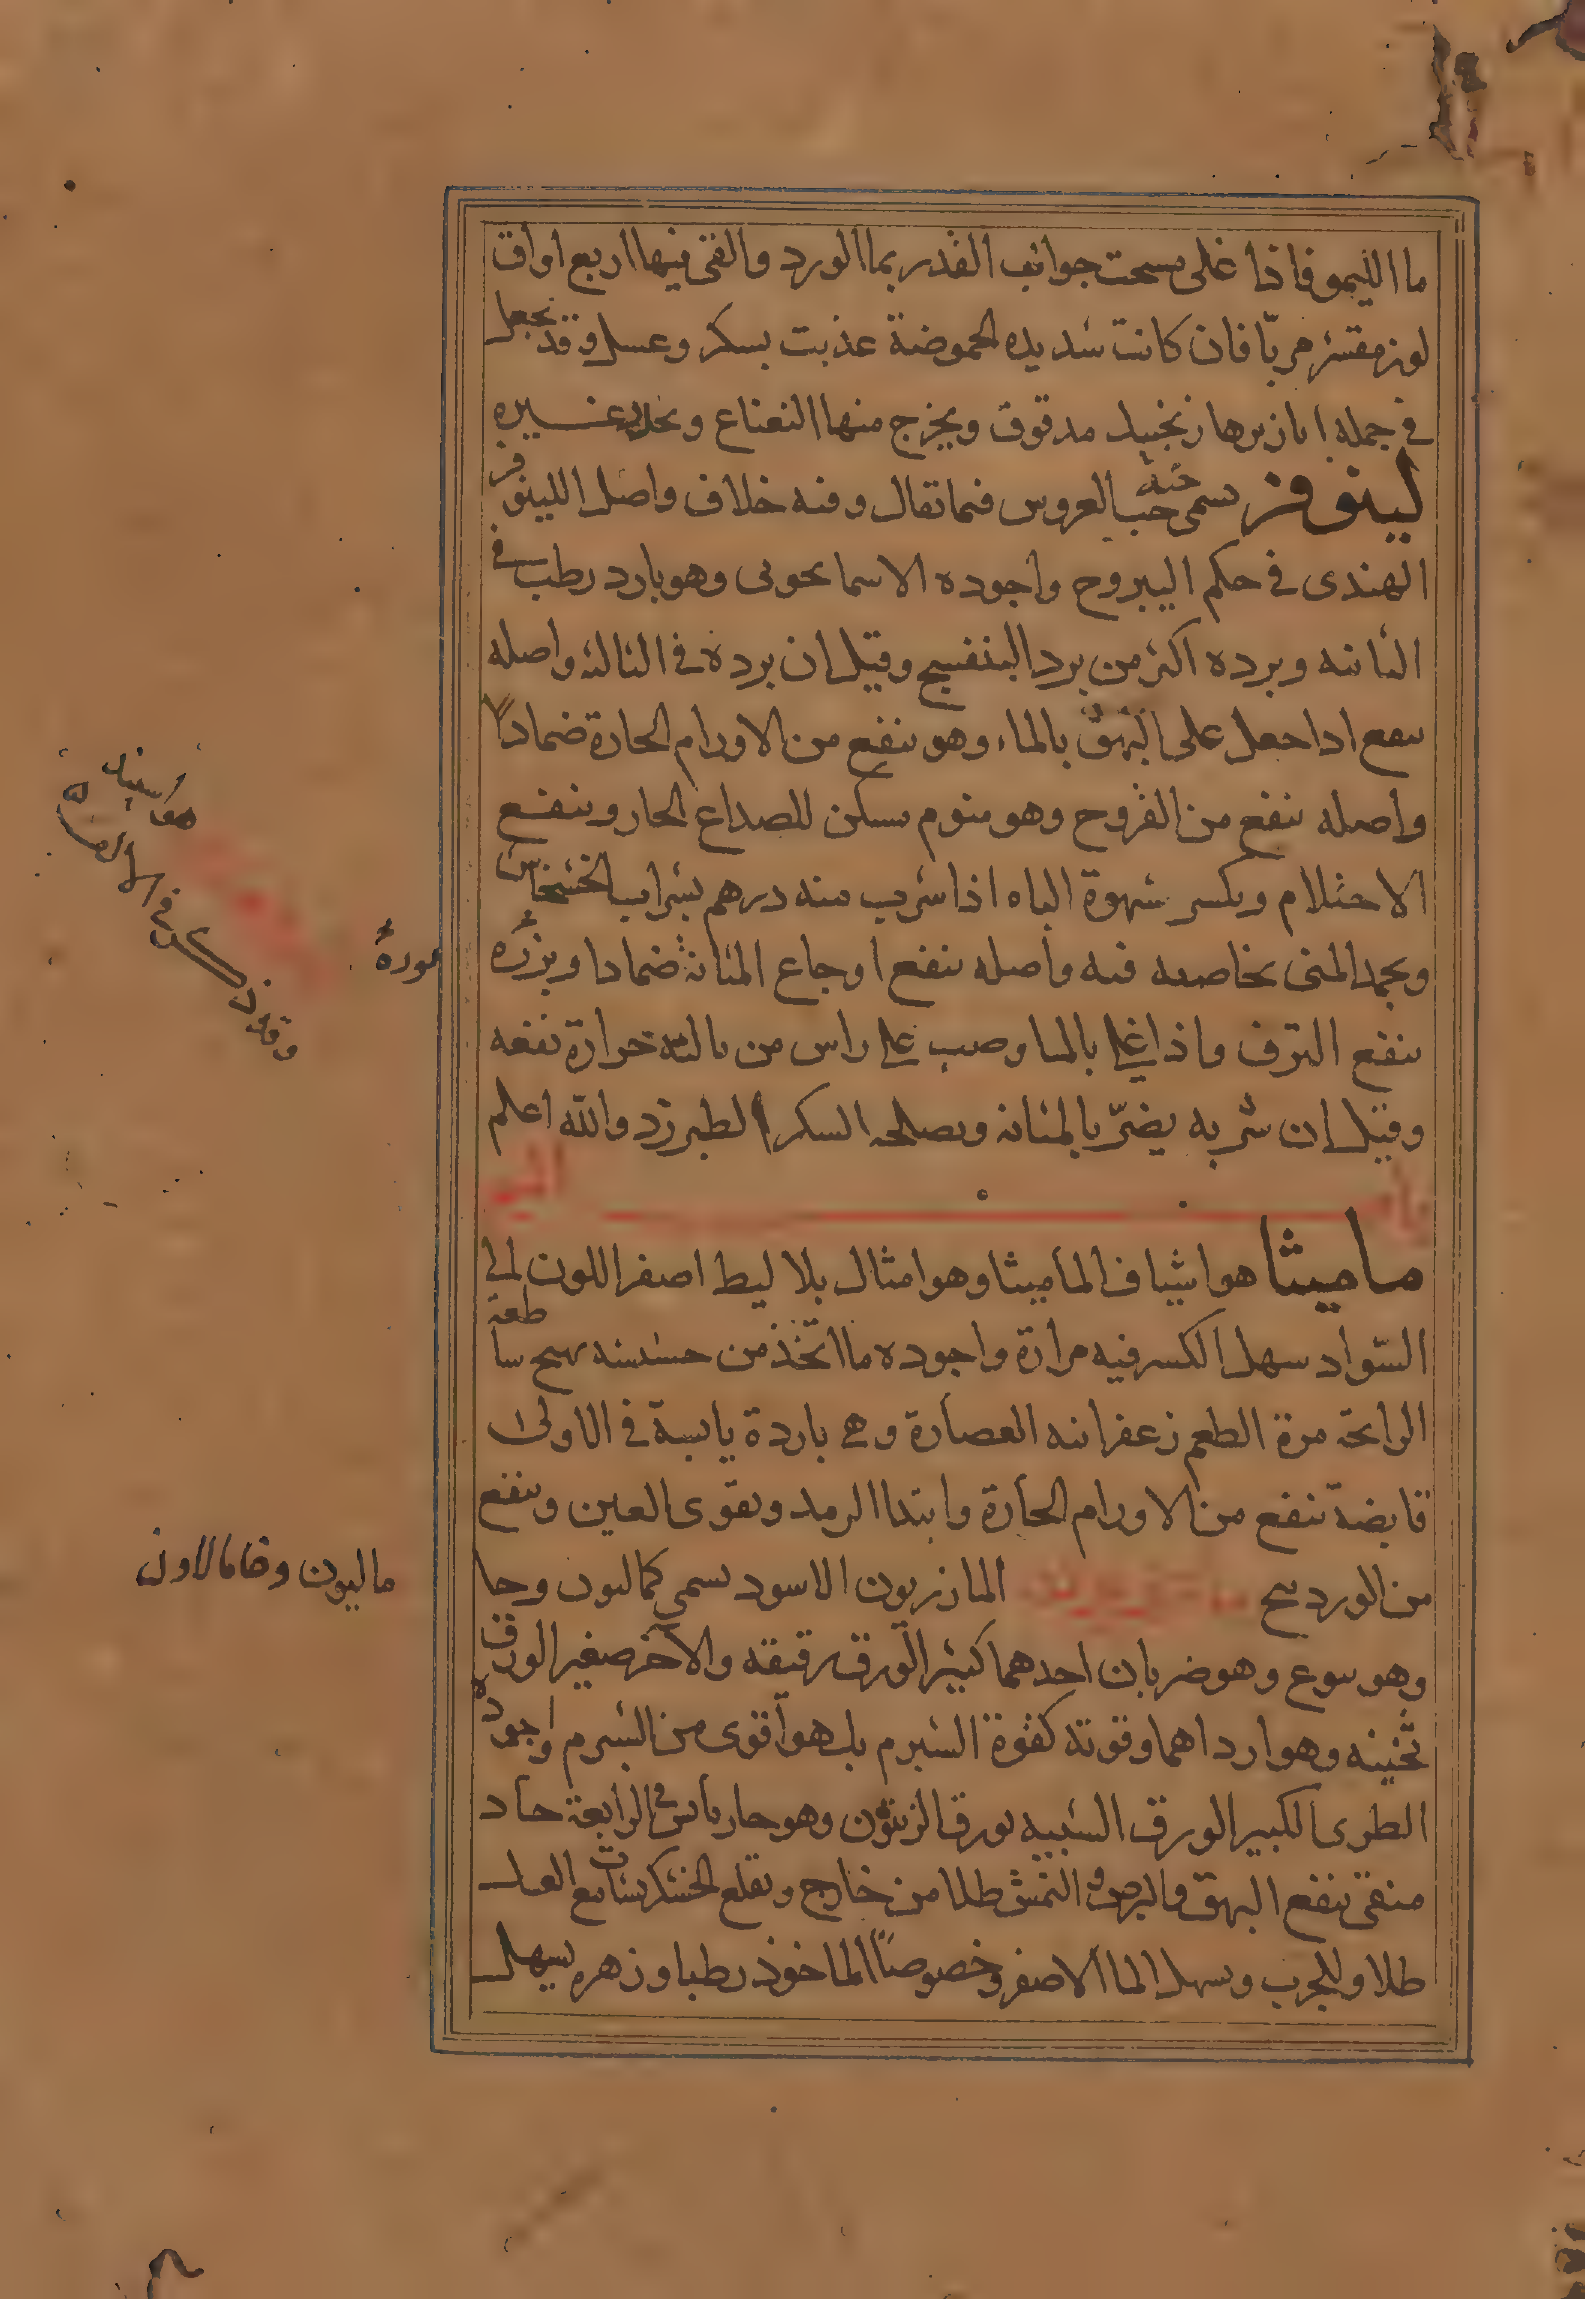 ما الليمو فاذا غلى مسحت جوانب القدر بما الورد والقى فيها اربع اواق
لوز مقشر مربا فان كانت شديده الحموضة عذبت بسكر وعسل وقد يجعل
فى جمله ابازيرها زنجبيل مدقوق ويخرج منها النعناع ويخلا غيره
لينوفر يسمى حب العروس فيما يقال وفيه خلاف واصل اللينوفر
الهندى فى حكم اليبروح واجوده الاسمانجونى وهو بارد رطب فى
الثانيه وبرده اكثر من برد البنفسج وقيل ان برده فى الثالثه واصله
ينفع اذا جعل على البهق بالماء وهو ينفع من الاورام الحارة ضمادا
واصله ينفع من القروح وهو منوم مسكن للصداع الحار وينفع
الاحتلام ويكسر شهوة الباه اذا شرب منه درهم بشراب الخشخاش
ويجمد المنى بخاصيه فيه واصله ينفع اوجاع المثانة ضمادا وبزره
ينفع النزف واذا غلى بالما وصب على راس من نالته حرارة نفعه
وقيل ان شربه يضر بالمثانه ويصلحه السكر الطبرزد والله اعلم
ماميثا هو اشياف الماميثا وهو امثال بلاليط اصفر اللون الى
السواد سهل الكسر فيه مرارة واجوده ما اتخذ من حشيشه ساطعة
الرايحة مرة الطعم زعفرانيه العصارة وهى باردة يابسة فى الاولى
قابضة تنفع من الاورام الحارة وابتدا الرمد ويقوى العين وينفع
من الوردينج المازريون الاسود يسمى
وهو يتوع وهو ضربان احدهما كبير الورق رقيقه والآخر صغير الورق
ثخينه وهو اردأهما وقوته كقوة الشبرم بل هو اقوى من الشبرم واجوده
الطرى الكبير الورق الشبيه بورق الزيتون وهو حار يابس فى الرابعة حاد
منقى ينفع البهق والبرص والنمش طلا من خارج ويقلع الخشكريشات مع العسل
طلا وللجرب ويسهل الما الاصفر وخصوصا الماخوذ رطبا وزهره يسهل
ماليون وخامالاون